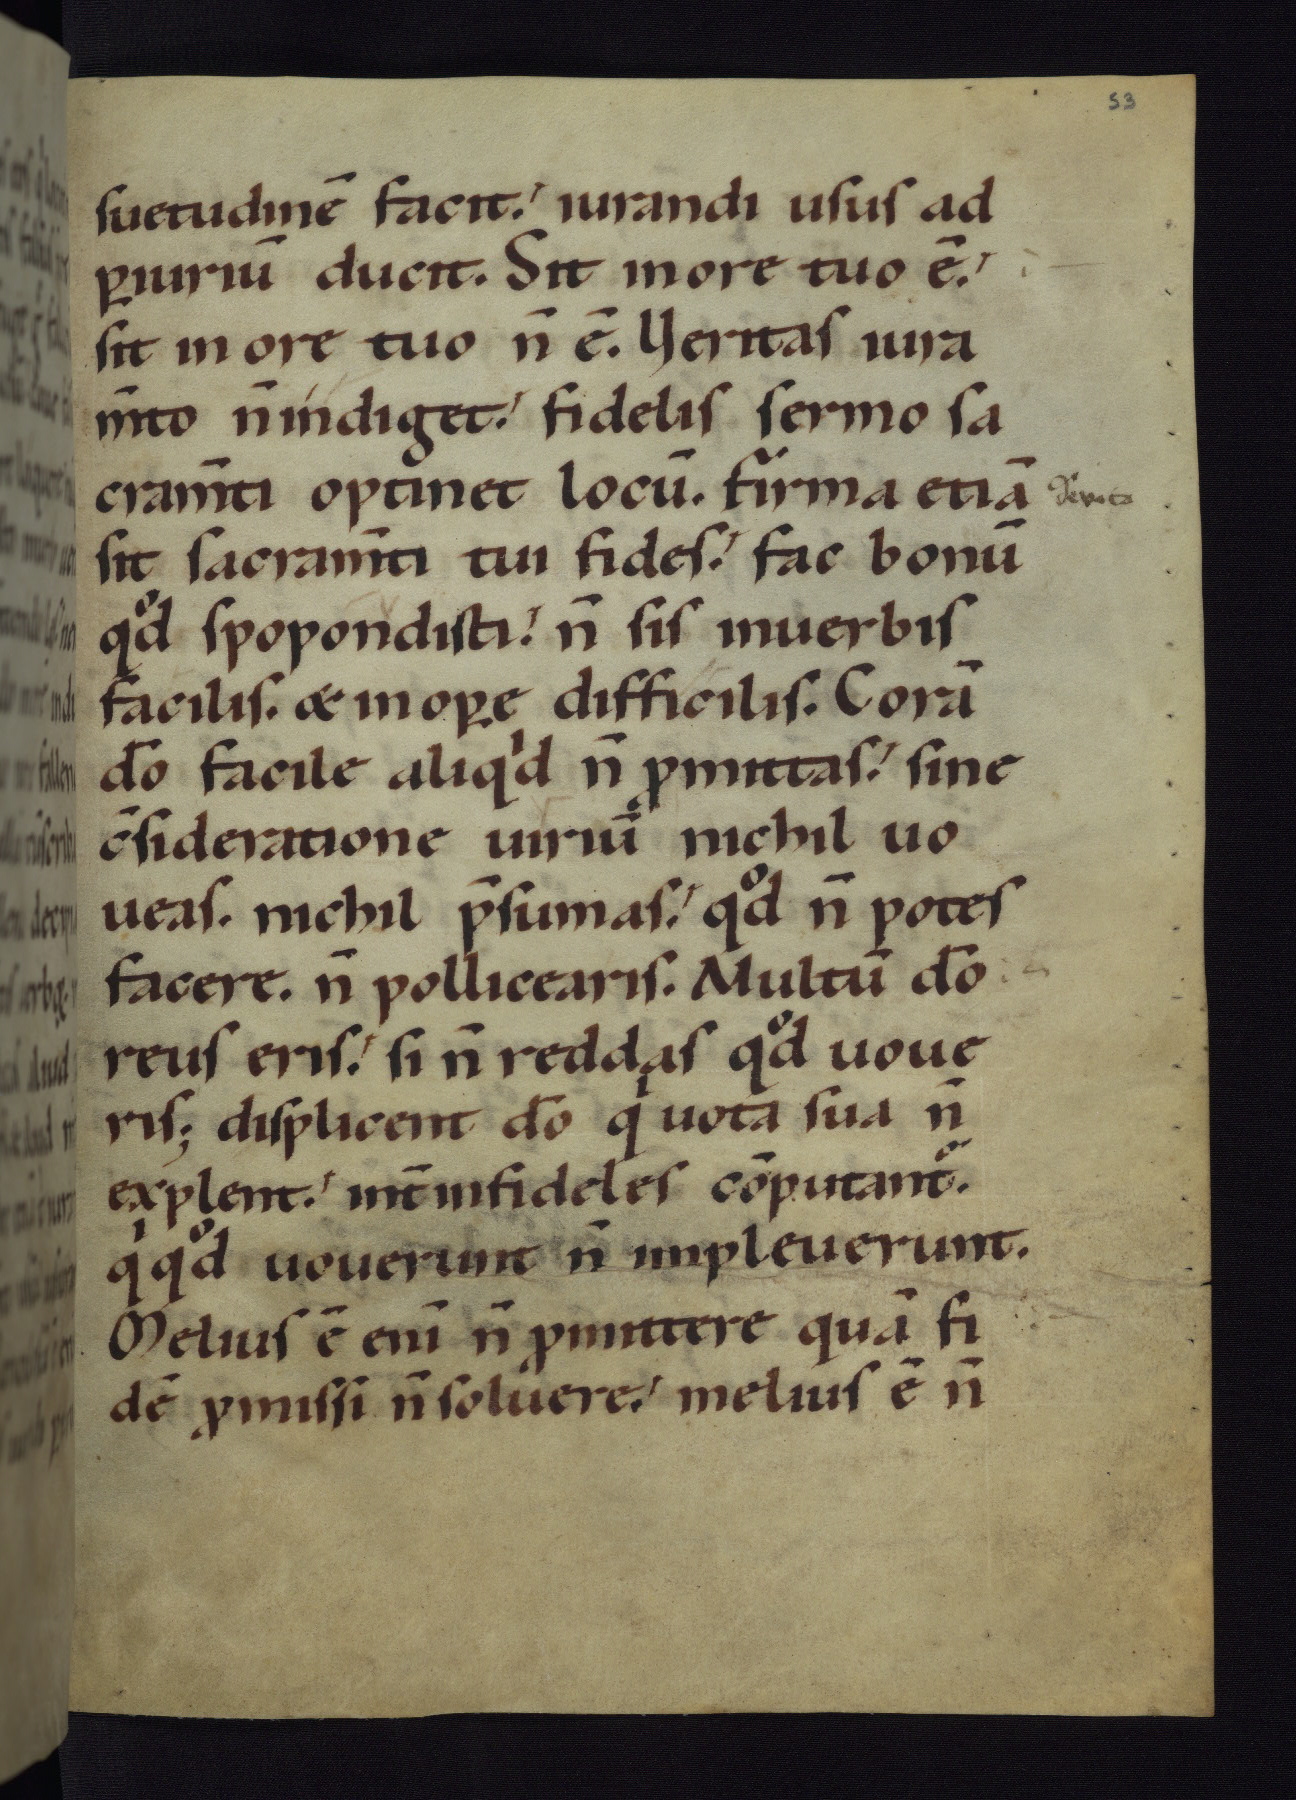 53
suetudinē facit. iurandi usus ad
ꝑiuriū ducit. Sit in ore tuo ē.
sit in ore tuo n̄ ē. Veritas iura
m̄to n̄ indiget. fidelis sermo sa
cram̄ti optinet locū. firma etiā
sit sacram̄ti tui fides. fac bonū
qͦd spopondisti. n̄ sis in uerbis
facilis. & in oꝑe difficilis. Corā
dō facile aliqͥd n̄ ꝓmittas. sine
c̄sideratione uiriū nichil uo
ueas. nichil p̄sumas. qͦd n̄ potes
facere. n̄ pollicearis. Multū dō
reus eris. si n̄ reddas qͦd uoue
ris; displicent dō qͥ uota sua n̄
explent. int̄ infideles cōputant᷑.
qͥ qͦd uouerunt n̄ impleuerunt.
Melius ē enī n̄ ꝓmittere quā fi
dē ꝓmissi n̄ soluere. melius ē n̄